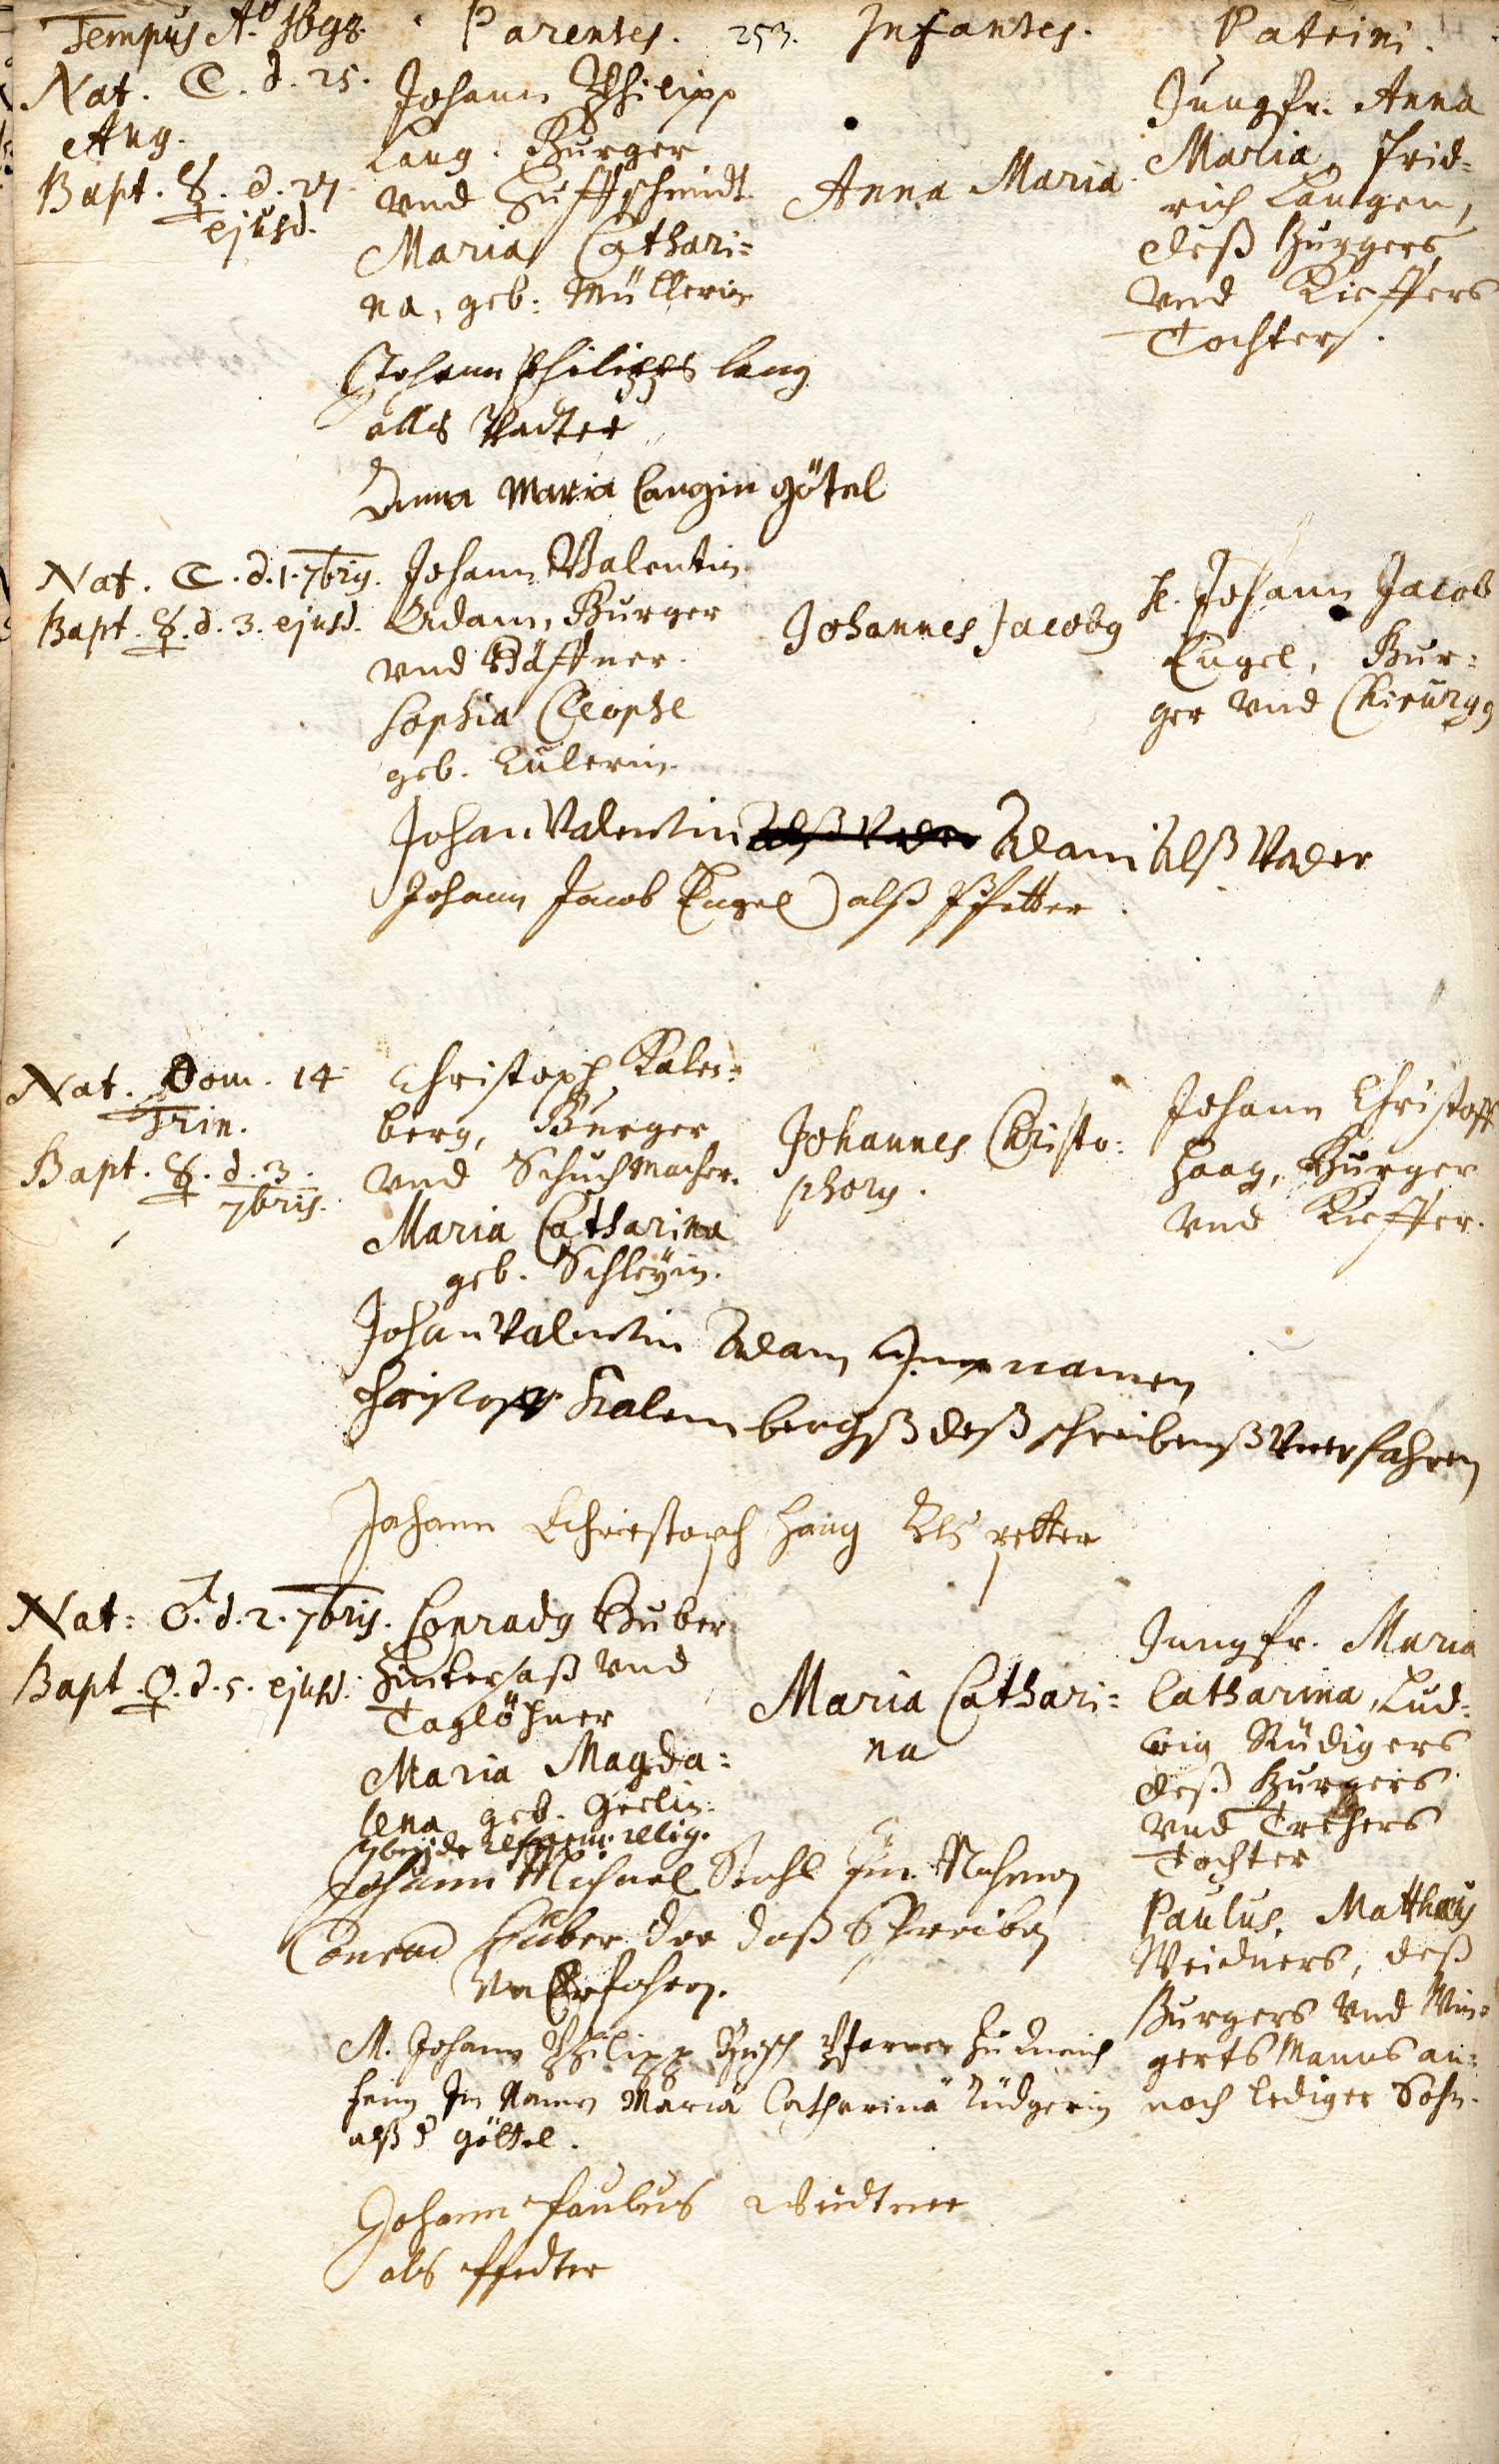 Tempus Aō 1698. Parentes. 253. Infantes. Patrini.
Nat. ☾. d. 25.
Aug.
Bapt. ☿. d. 27.
ejusd.
Johann Philipp
Lang. Burger
vnd Huffschmidt
Maria Cathari=
na, geb: Müllerin
Anna Maria
Jungfr. Anna
Maria, Frid=
rich Langen,
deß Burgers
vnd Kieffers
Tochter.
Johann Philipps lang
alls Vadter
Anna Maria Langin götel
Nat. ☾. d. 1. 7bris.
Bapt. ☿. d. 3. ejusd.
Johann Valentin
Adam, Burger
vnd Häffner.
Sophia Cleophe
geb. Eulerin
Johannes Jacobg
H. Johann Jacob
Engel, Bur=
ger vnd Chirurgg
Johan Valentin Adam alß Vader
Johann Jacob Engel alß Pfetter.
Nat. Dom. 14
Trin.
Bapt. ☿. d. 3.
7bris.
Christoph Kalen=
berg, Burger
vnd Schuchmacher.
Maria Catharina
geb. Schleyin.
Johannes Christo=
phorg.
Johann Christoff
Haag, Burger
vnd Kieffer.
Johan Valentin Adam namen
Christoff Kalembergß deß schreibenß Vnerfahren
Johann Christoph Haag Als petter
Nat: ♂. d. 2. 7bris.
Bapt. ♀. d. 5. ejusd.
Conradg Huber
Hintersaß vnd
Taglöhner
Maria Magda=
lena geb. Geelin.
beyde reform. relig.
Maria Cathari=
na
Jungfr. Maria
Catharina, Lud=
wig Rüdigers
deß Burgers
vnd Trehers
Tochter
Paulus, Matthäus
Weidners, deß
Burgers vnd Win=
gertsmanns an=
noch lediger Sohn.
Johann Michael Stahl Im Nahmen
Conrad Huber der daß Schreiben
Vn Erfahren.
M. Johann Philipp Pfarrer zu
heim Im Namen Mariä Catharinä Rüdgerin
alß göttel.
Johann Paulus Weidtner
als pfedter